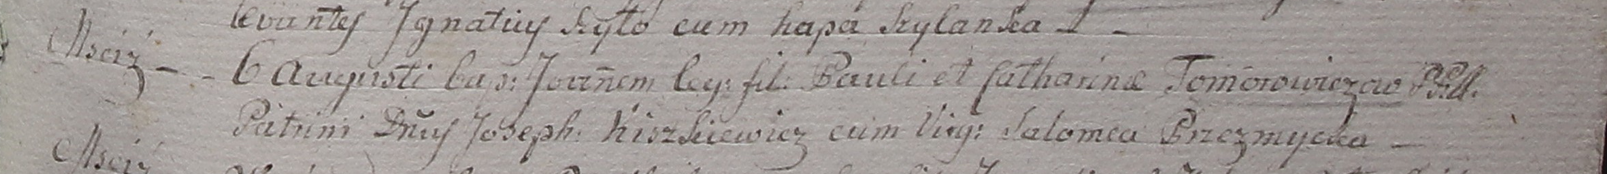 levantes Ignatius Szyło cum hapa Szylanka
Mściż 6 Augusti bap: Joannem leg: fil: Pauli et Catharinæ Tomorowiczow PPall.
Patrini Dnus Joseph: Kiszkiewicz cum Virg: Salomea Przezmycka
Mściż